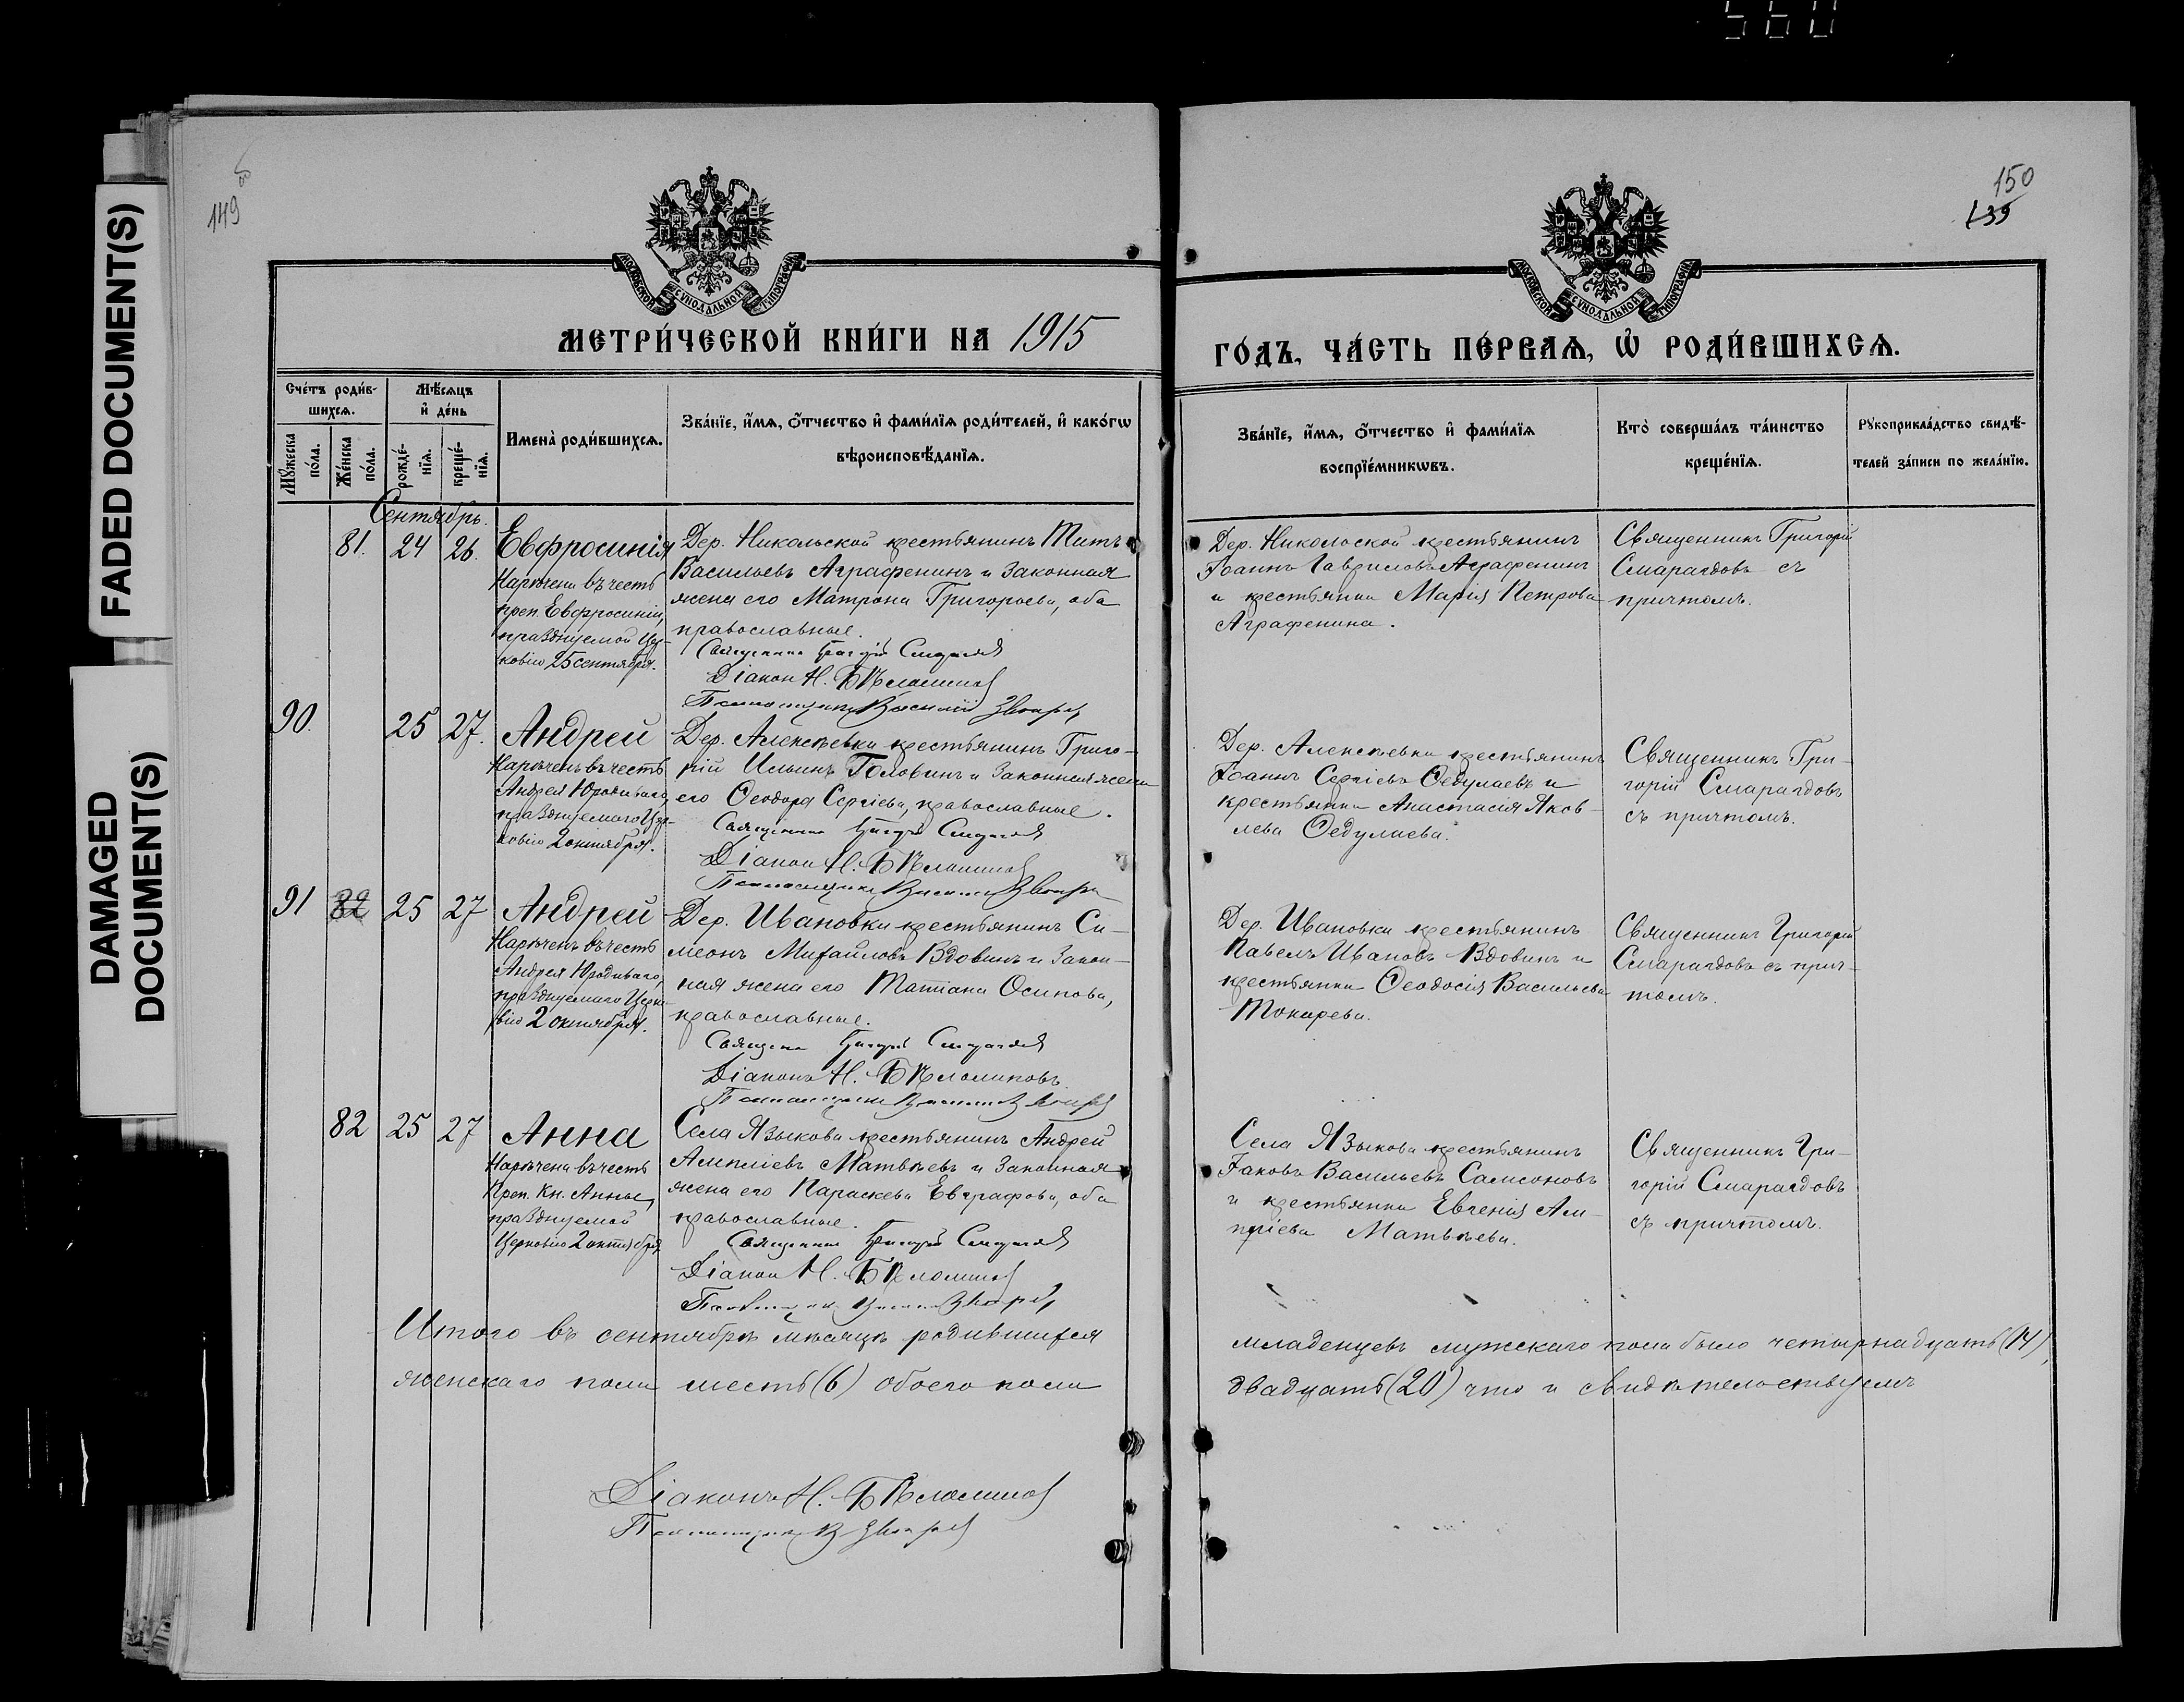 560
FADED DOCUMENT(S)
DAMAGED
DOCUMENT(S)
149 об
150
139
МОСКОВСКОЙ СѴНОДАЛЬНОЙ ТИПОГРАФІИ
МОСКОВСКОЙ СѴНОДАЛЬНОЙ ТИПОГРАФІИ
МЕТРИ́ЧЕСКОЙ КНИ́ГИ НА 1915
ГО́ДЪ, ЧА́СТЬ ПЕ́РВАѦ, Ѡ҆ РОДИ́ВШИХСѦ.
Сче́тъ роди́в-
шихсѧ.
Мꙋ́жеска
по́ла.
Же́нска
по́ла.
Мѣ́сѧцъ
и҆ де́нь
рожде́-
нїѧ.
креще́-
нїѧ.
Имена̀ роди́вшихсѧ.
Зва́нїе, и҆́мѧ, ѻ҆́тчество и҆ фами́лїѧ роди́телей, и҆ како́гѡ
вѣроисповѣ́данїѧ.
Зва́нїе, и҆́мѧ, ѻ҆́тчество и҆ фами́лїѧ
воспрїе́мникѡвъ.
Кто̀ соверша́лъ та́инство
креще́нїѧ.
Рꙋкоприкла́дство свидѣ́-
телей за́писи по жела́нїю.
Сентябрь.
81. 24 26. Евфросинія
Наречена въ честь
преп. Евфросиніи,
празднуемой Цер-
ковію 25 сентября.
Дер. Никольской крестьянинъ Титъ
Васильевъ Аграфенинъ и законная
жена его Матрона Григорьева, оба
православные.
Священникъ Григорій Смарагдовъ
Діаконъ Н. Бѣломизовъ
Псаломщикъ Василій
Дер. Никольской крестьянинъ
Іоаннъ Гавриловъ Аграфенинъ
и крестьянка Марія Петрова
Аграфенина.
Священникъ Григорій
Смарагдовъ съ
причтомъ.
90. 25 27. Андрей
Нареченъ въ честь
Андрея Юродиваго,
празднуемаго Цер-
ковію 2 октября.
Дер. Алексѣевки крестьянинъ Григо-
рій Ильинъ Головинъ и законная жена
его Ѳеодора Сергіева, православные.
Священникъ Григорій Смарагдовъ
Діаконъ Н.
Псаломщикъ Василій
Дер. Алексѣевки крестьянинъ
Іоаннъ Сергіевъ Ѳедулаевъ и
крестьянка Анастасія Яков-
лева Ѳедулаева.
Священникъ Гри-
горій Смарагдовъ
съ причтомъ.
91 82 25 27 Андрей
Нареченъ въ честь
Андрея Юродиваго,
празднуемаго Церко-
вію 2 октября.
Дер. Ивановки крестьянинъ Си-
меонъ Михайловъ Вдовинъ и закон-
ная жена его Татіана Осипова,
православные.
Священникъ Григорій Смарагдовъ
Діаконъ Н.
Псаломщикъ
Дер. Ивановки крестьянинъ
Павелъ Ивановъ Вдовинъ и
крестьянка Ѳеодосія Васильева
Токарева.
Священникъ Григорій
Смарагдовъ съ прич-
томъ.
82 25 27 Анна
Наречена въ честь
Преп. Кн. Анны,
празднуемой
Церковію 2 октября
Села Языкова крестьянинъ Андрей
Амплiевъ Матвѣевъ и законная
жена его Параскева Евграфова, оба
православные.
Священникъ Григорій Смарагдовъ
Діаконъ Н.
Псаломщикъ
Села Языкова крестьянинъ
Іаковъ Васильевъ Самсоновъ
и крестьянка Евгенія Ам-
пліева Матвѣева.
Священникъ Гри-
горій Смарагдовъ
съ причтомъ.
Итого въ сентябрѣ мѣсяцѣ родившихся младенцевъ мужскаго пола было четырнадцать (14),
женскаго пола шесть (6) обоего пола двадцать (20) что и свидѣтельствуемъ
Діаконъ Н.
Псаломщикъ В.